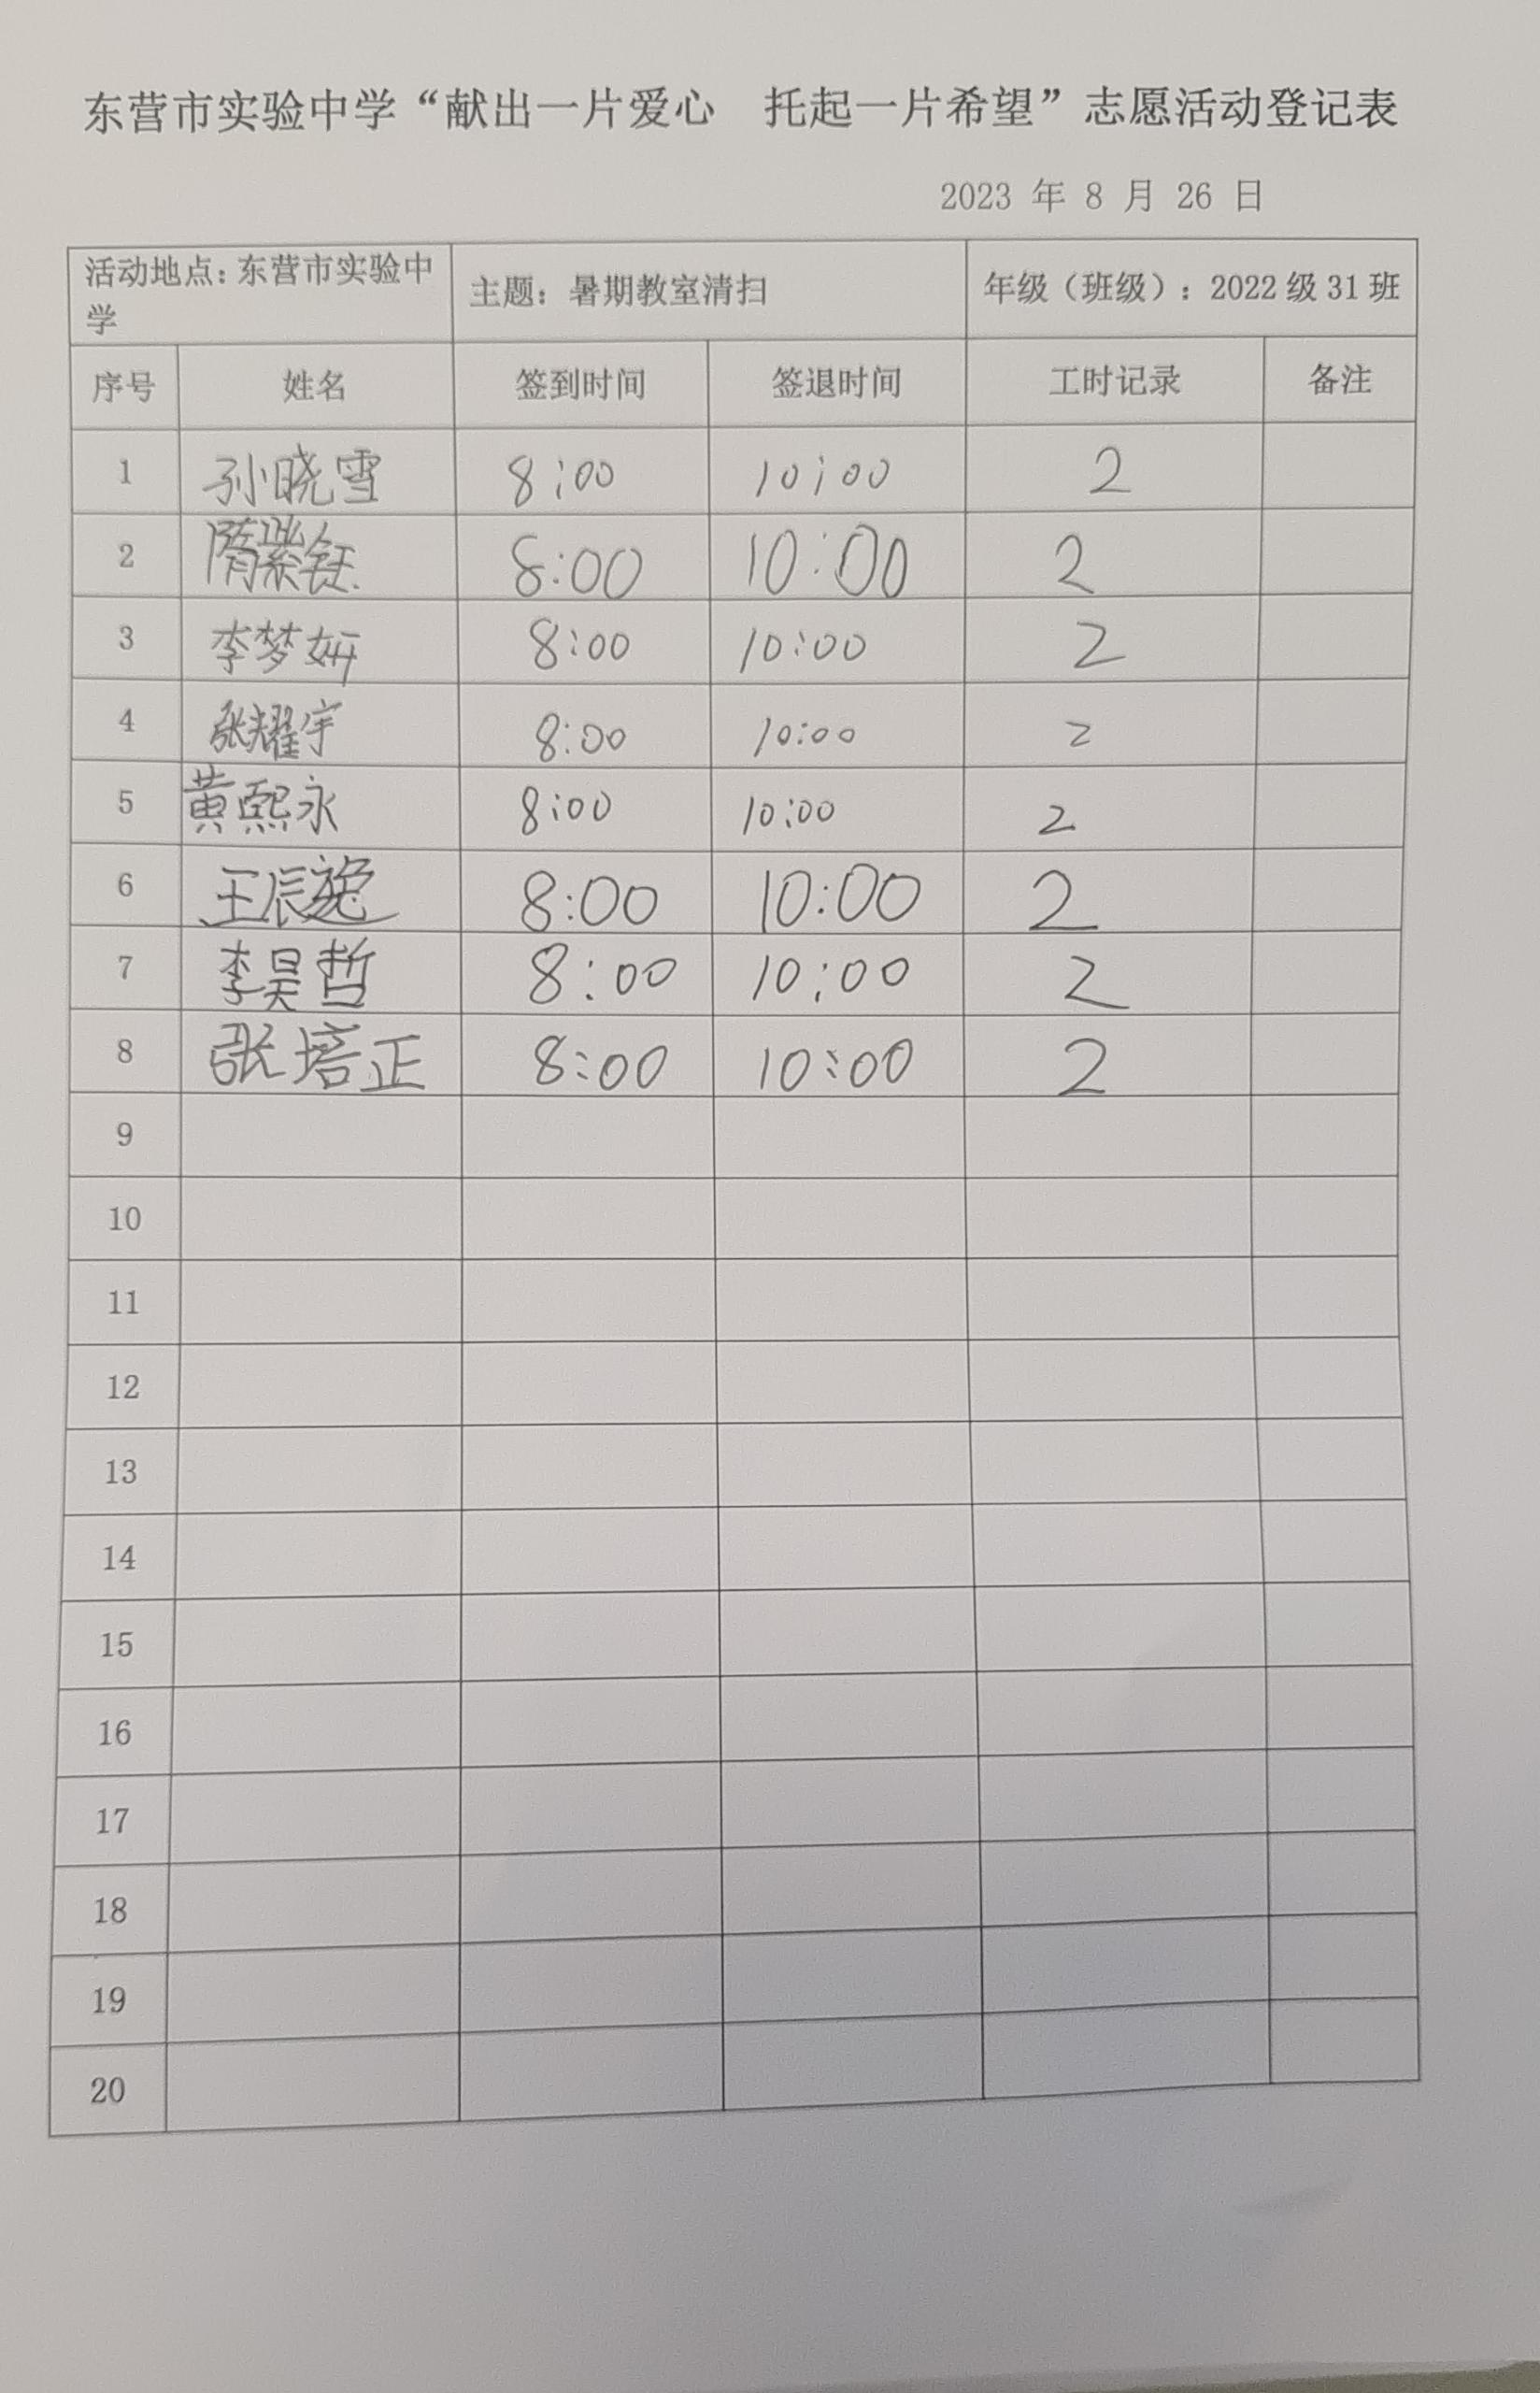 东营市实验中学“献出一片爱心 托起一片希望”志愿活动登记表
2023 年 8 月 26 日
活动地点：东营市实验中学 主题：暑期教室清扫 年级（班级）：2022 级 31 班
序号 姓名 签到时间 签退时间 工时记录 备注
1 孙晓雪 8:00 10:00 2
2 隋紫钰 8:00 10:00 2
3 李梦妍 8:00 10:00 2
4 张耀宇 8:00 10:00 2
5 黄熙永 8:00 10:00 2
6 王辰 8:00 10:00 2
7 李昊哲 8:00 10:00 2
8 张培正 8:00 10:00 2
9
10
11
12
13
14
15
16
17
18
19
20